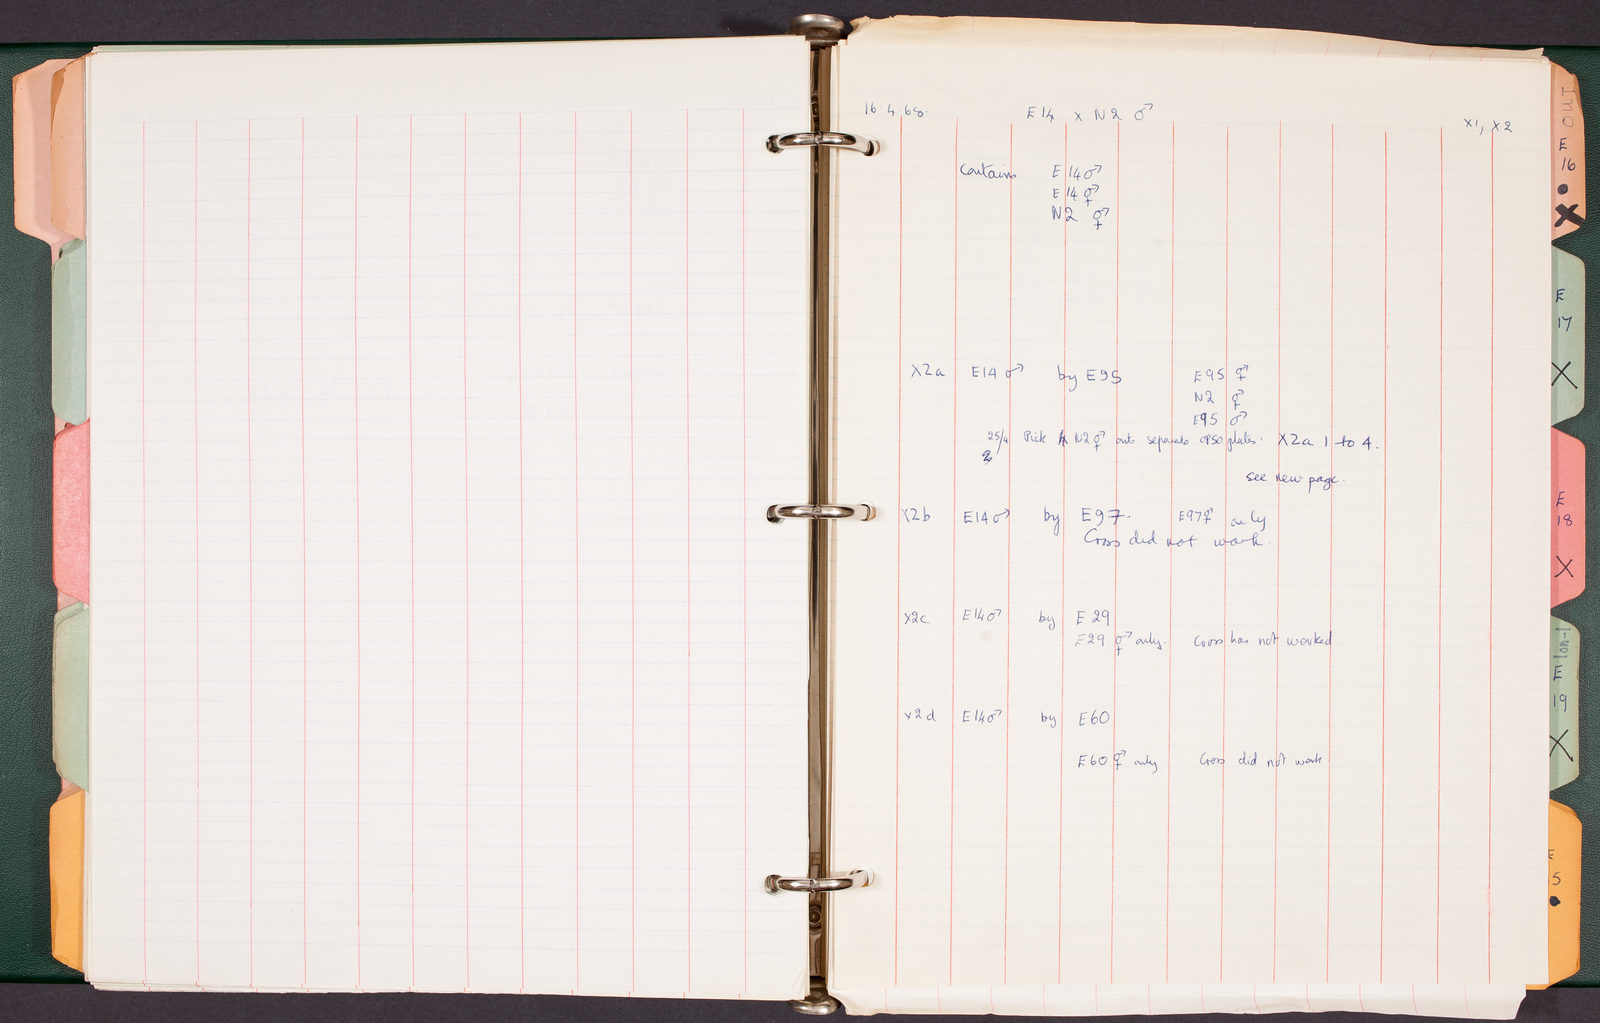 16.4.68. E14 x N2 ♂
X1, X2
Contains E14♂
E14 ⚥
N2 ⚥
X2a E14♂ by E95 E95 ⚥
N2 ⚥
E95 ♂
25/4 Pick 4 N2⚥ onto separate OP50 plates. X2a 1 to 4.
see new page.
X2b E14♂ by E97. E97⚥ only
Cross did not work.
X2c E14♂ by E29
E29 ⚥ only. Cross has not worked
X2d E14♂ by E60
E60⚥ only Cross did not work
E
16
X
E
17
X
E
18
X
E
19
X
E
5